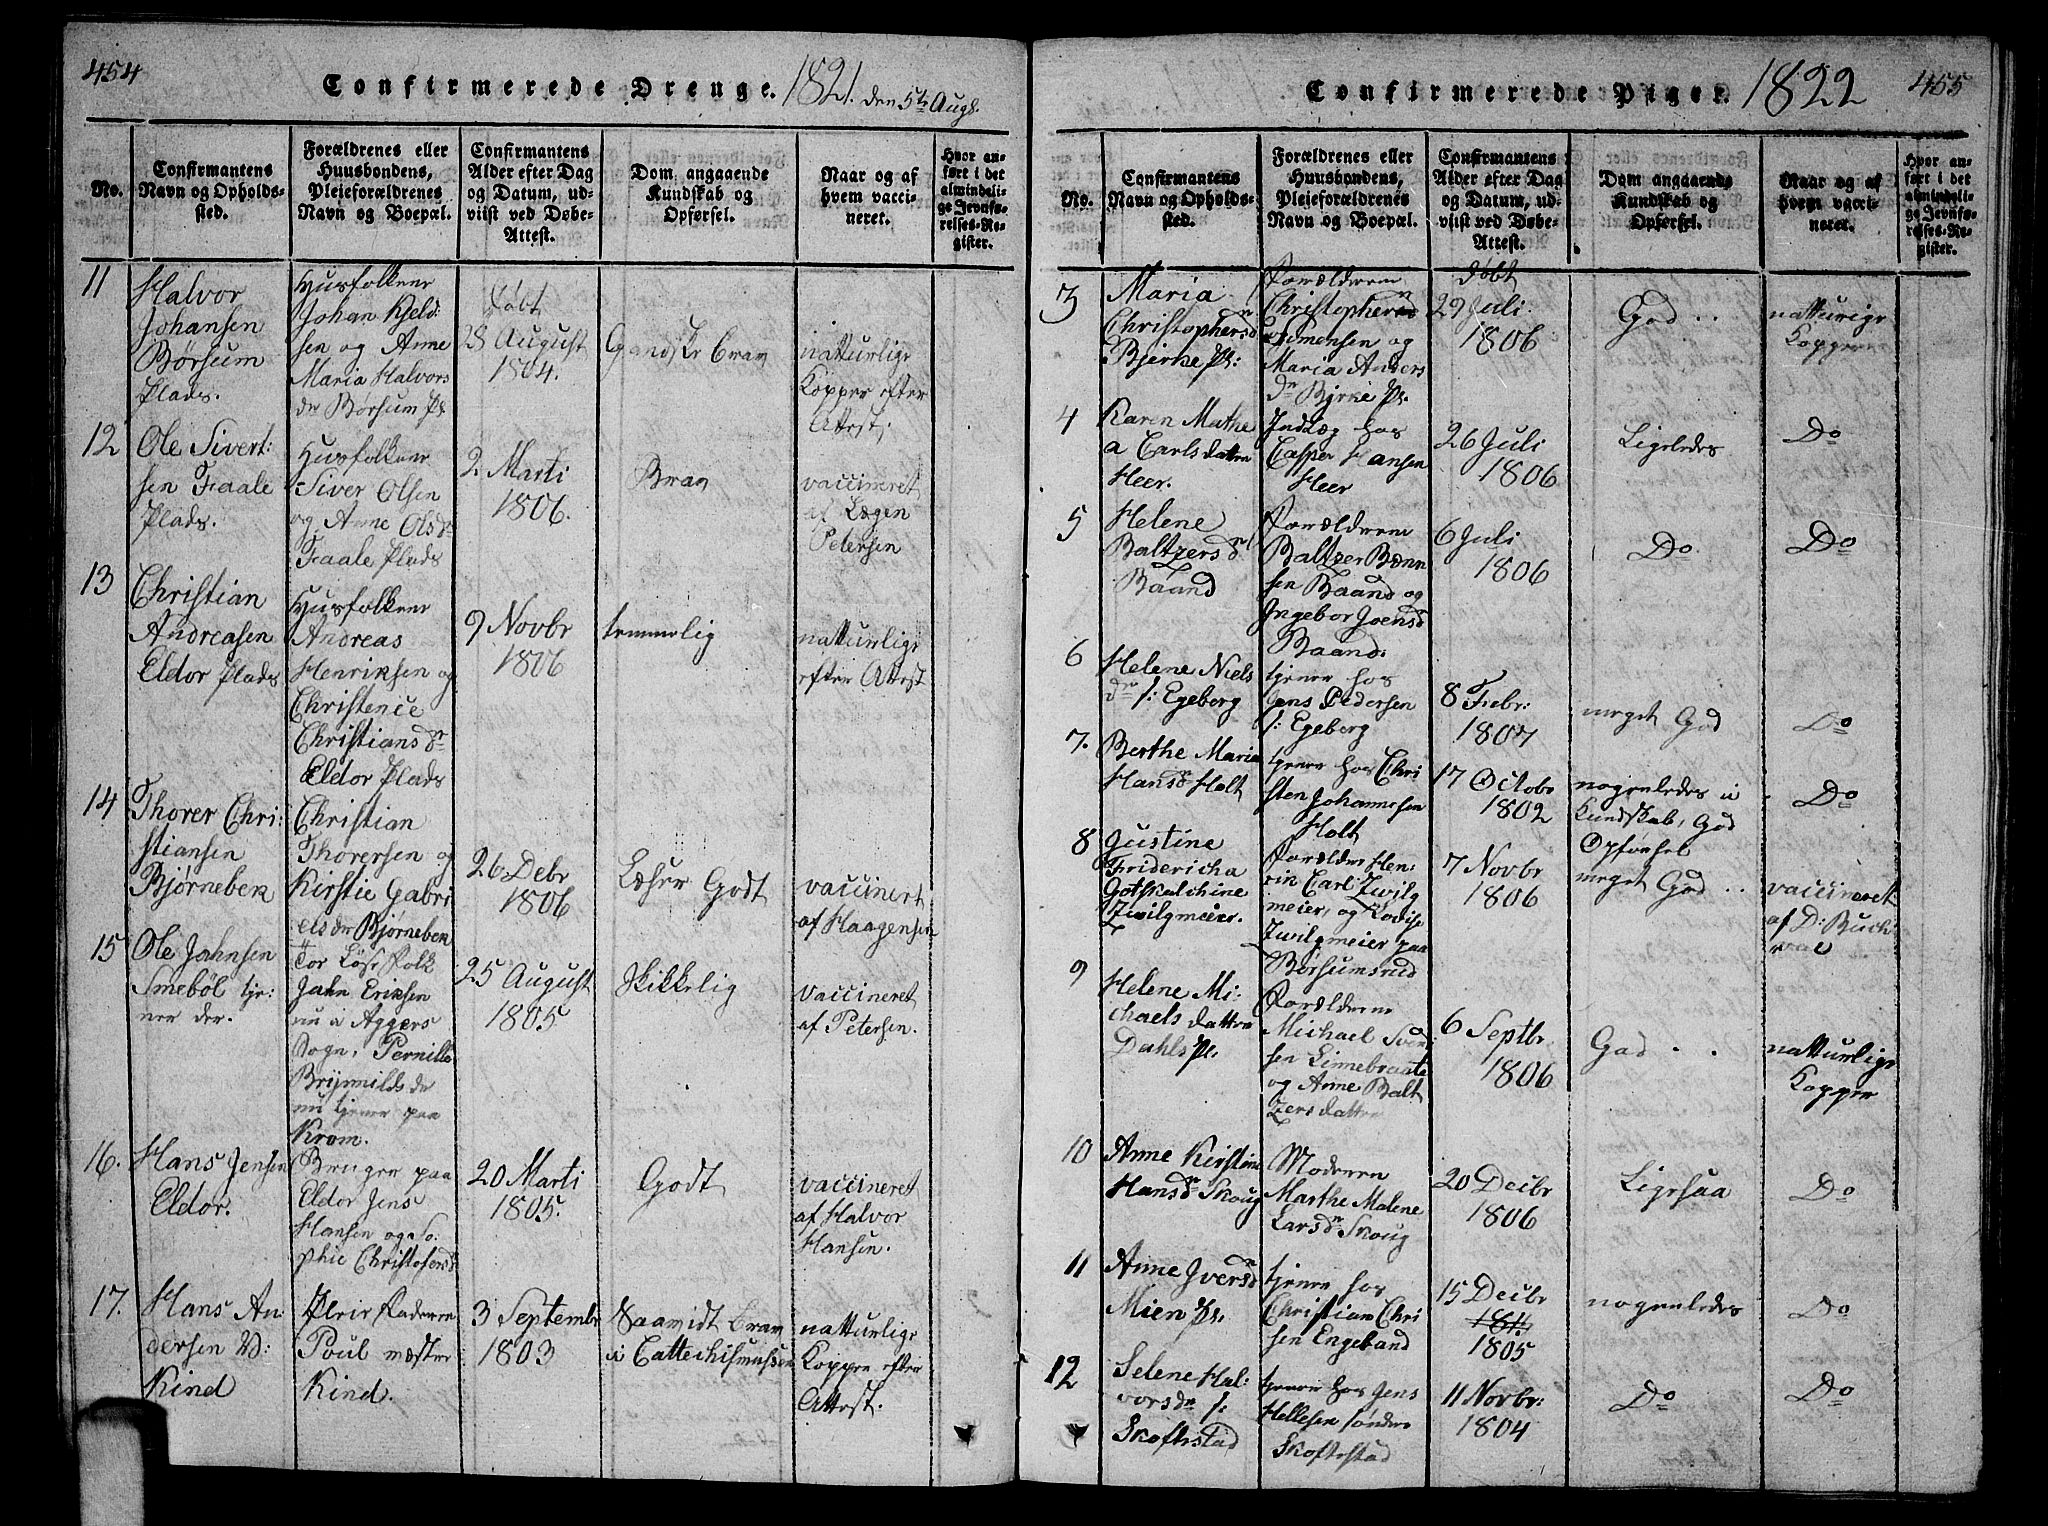 454
Confirmerede Drenge. 1821. den 5te Augs.
No.
Confirmantens Navn og Opholds-sted.
Forældrenes eller Huusbondens, Plejeforældrenes Navn og Boepæl.
Confirmantens Alder efter Dag og Datum, ud-viist ved Døbe-Attest.
Dom angaaende Kundskab og Opførsel.
Naar og af hvem vacci-neret.
Hvor an-ført i det almindeli-ge Jevnfø-relses-Re-gister.
11
Halvor
Johansen
Børsum
Plads.
Husfolkene
Johan Kjeld
sen og Anne
Maria Halvors
dr Børsum Pl
Døbt
28 August
1804.
Gandske brav
natturlige
Kopper efter
Attest.
12
Ole Sivert:
sen Faale
Plads.
Husfolkene
Siver Olsen
og Anne Olsdr
Faale Plads
2 Marti
1806.
Brav
vaccineret
af Lægen
Petersen
13
Christian
Andreasen
Eldor Plads
Husfolkene
Andreas
Henriksen og
Christence
Christiansdr
Eldor Plads
9 Novbr
1806
temmelig
natturlige
efter Attest
14
Thorer Chri:
stiansen
Bjørnebek
Christian
Thorersen og
Kirstie Gabri
elsdr Bjørnebek
26 Debr
1806
Læser Godt
vaccinert
af Haagensen
15
Ole Jahnsen
Smebøl tje:
ner der.
For Løse Folk
Jahn Eriksen
nu i Aggers
Sogn, Pernille
Brynnilds dr
nu tjener paa
Krom.
25 August
1805
skikkelig
vaccineret
af Petersen.
16.
Hans Jensen
Eldor.
Bruger paa
Eldor Jens
Hansen og So
phie Christofersd
20 Marti
1805.
Godt
vaccineret
af Halvor
Hansen.
17.
Hans An
dersen V:
Kind
Pleie Faderen
Poul mæster
Kind.
3 Septembr
1803
Saavidt brav
i Cattechismussen
natturlige
Kopper efter
Attest.
455
Confirmerede Piger. 1822
No.
Confirmantens Navn og Opholds-sted.
Forældrenes eller Huusbondens, Plejeforældrenes Navn og Boepæl.
Confirmantens Alder efter Dag og Datum, ud-viist ved Døbe-Attest.
Dom angaaende Kundskab og Opførsel.
Naar og af hvem vacci-neret.
Hvor an-ført i det almindeli-ge Jevnfø-relses-Re-gister.
3
Maria
Christophersdn
Bjerke Pl:
Forældrene
Christopher
Simensen og
Maria Anders
dr Bjerke Pl.
døbt
29 Juli
1806
God ..
natturige
Kopper
4
Karen Mathe
a Carlsdatter
Heer.
Indlæg hos
Casper Hansen
Heer
26 Juli
1806
Ligeledes
Do
5
Helene
Baltzersdr
Baand
Forældrene
Baltzer Bænn
sen Baand og
Ingebor Joensd
Baand.
6 Juli
1806
Do
Do
6
Helene Niels
dr s: Egeborg
tjener hos
Jens Pedersen
s: Egeborg
8 Febr:
1807
meget God
Do
7.
Berthe Maria
Hansdr Holt
tjener hos Chri
sten Johannesen
Holt
17 Octobr
1802
nogenledes i
Kundskab, God
Opførsel
Do
8
Justine
Fridericha
Gotskalchine
Zwilgmeier.
Forældre Hen
rin Carl Zwilg
meier, og Lovise
Zwilgmeier paa
Børsumsrud
7 Novbr
1806
meget God ..
vaccineret
af D: Buch
wal
9
Helene Mi:
chaels datter
Dahls Pl.
Forældrene
Michael Svend
sen Linnebraate
og Anne Balt
zersdatter
6 Septbr
1806
God . .
natturlige
Kopper
10
Anne Kirstine
Hansdr Skoug
Moderen
Marthe Malene
Larsdr Skoug
20 Decbr
1806
Ligesaa
Do
11
Anne Iversdn
Mien Pl.
tjener hos
Christian Chri
sen Engeband
15 Decbr
1805
nogenledes
Do
12
Selene Hal:
vorsdr s:
Skoftestad
tjener hos Jens
Hellesen søndre
Skoftestad
11 Novbr:
1804
Do
Do